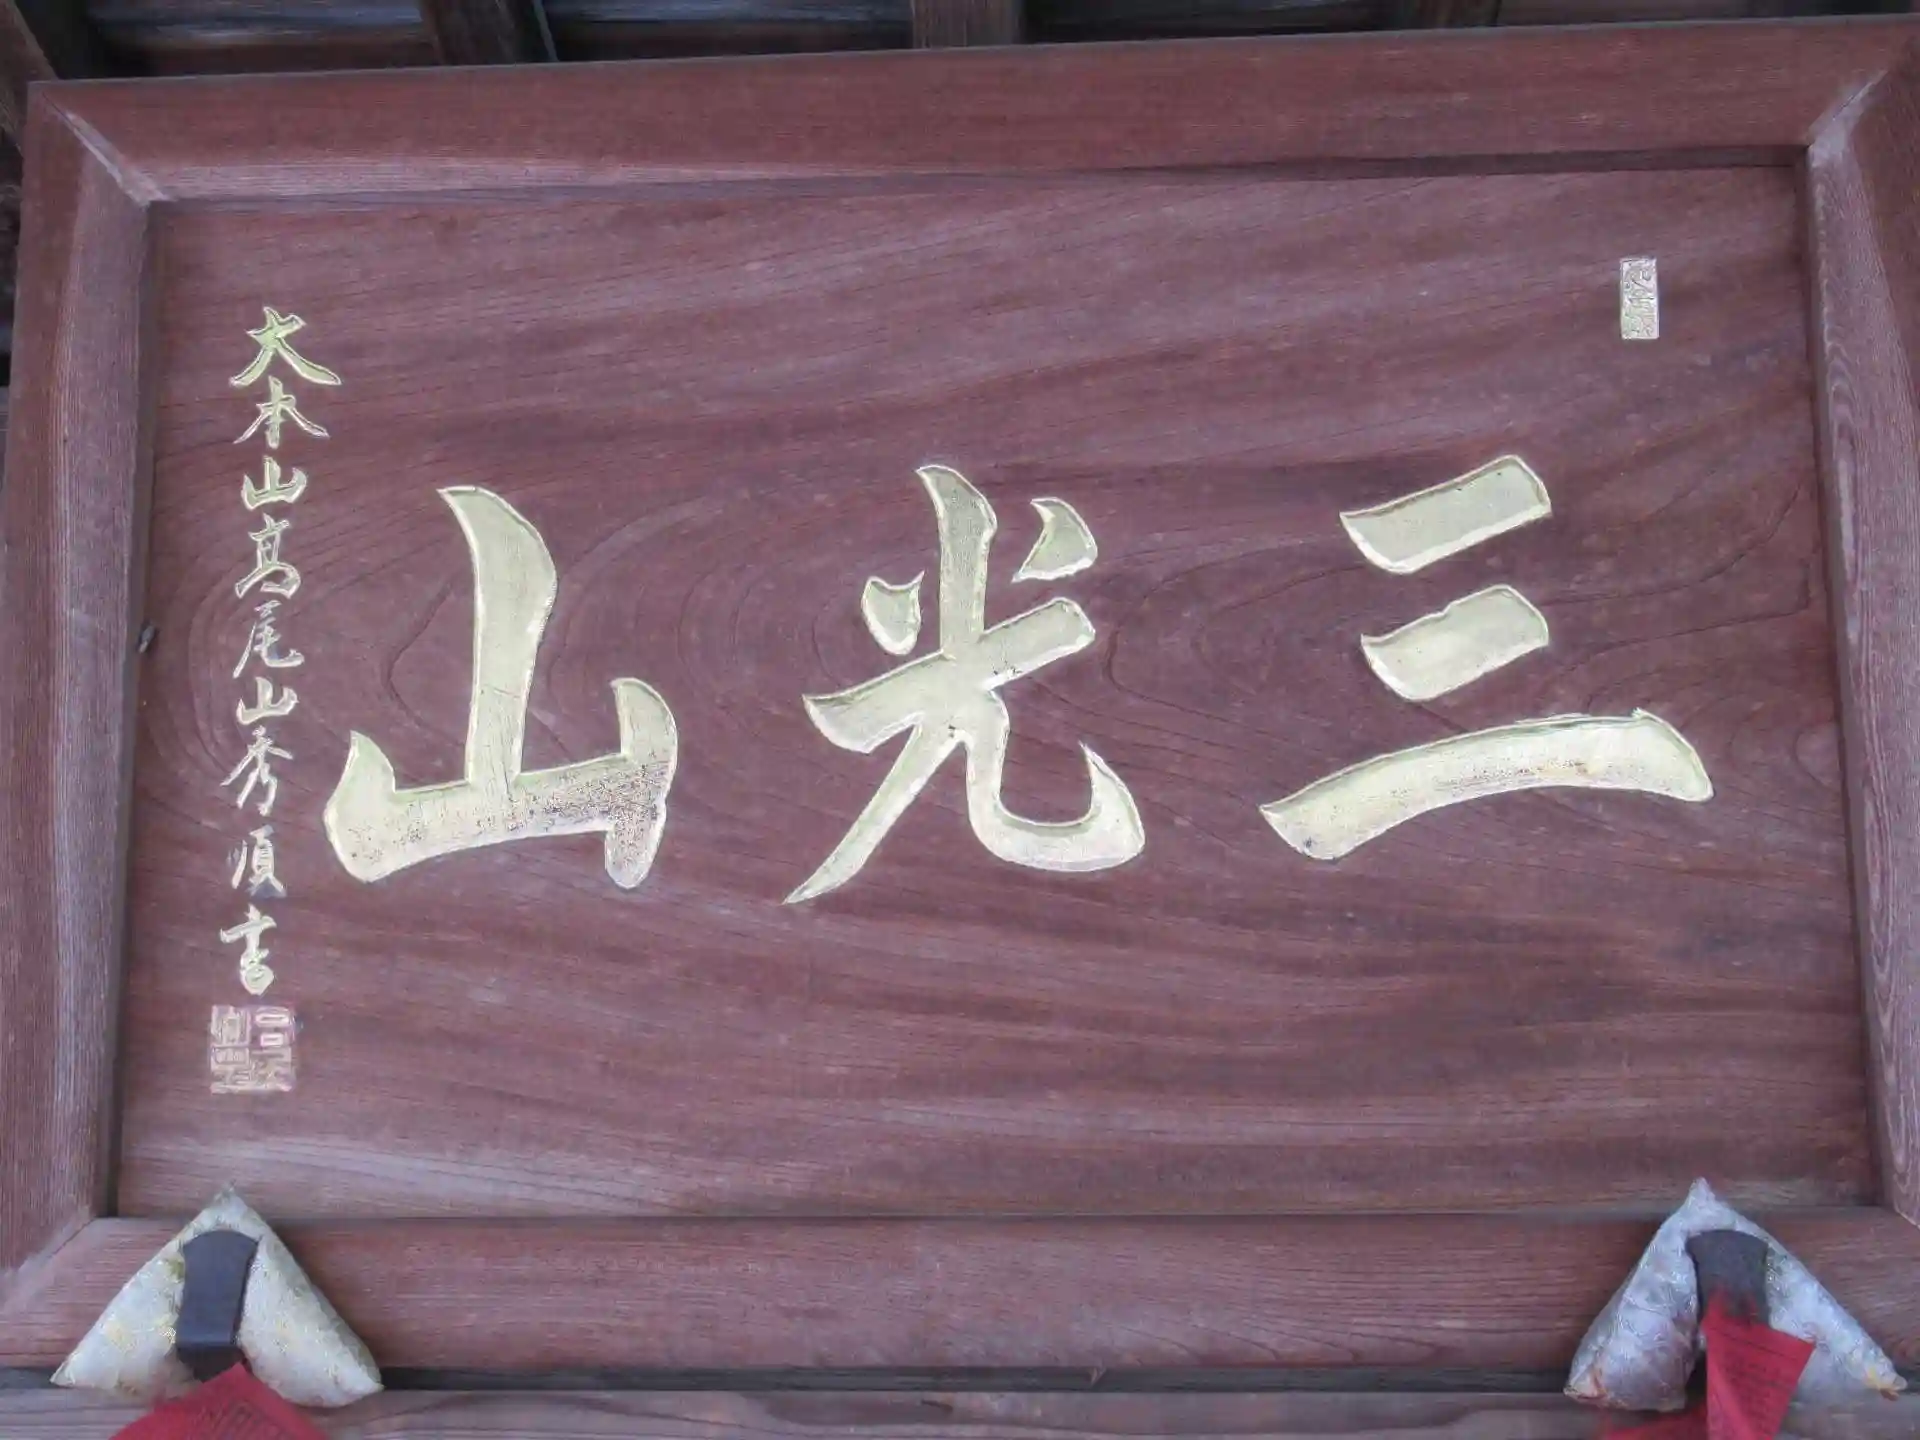 三光山
大本山高尾山秀順書